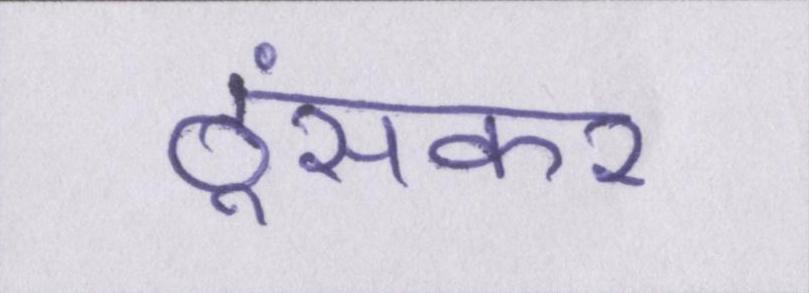 ठूंसकर